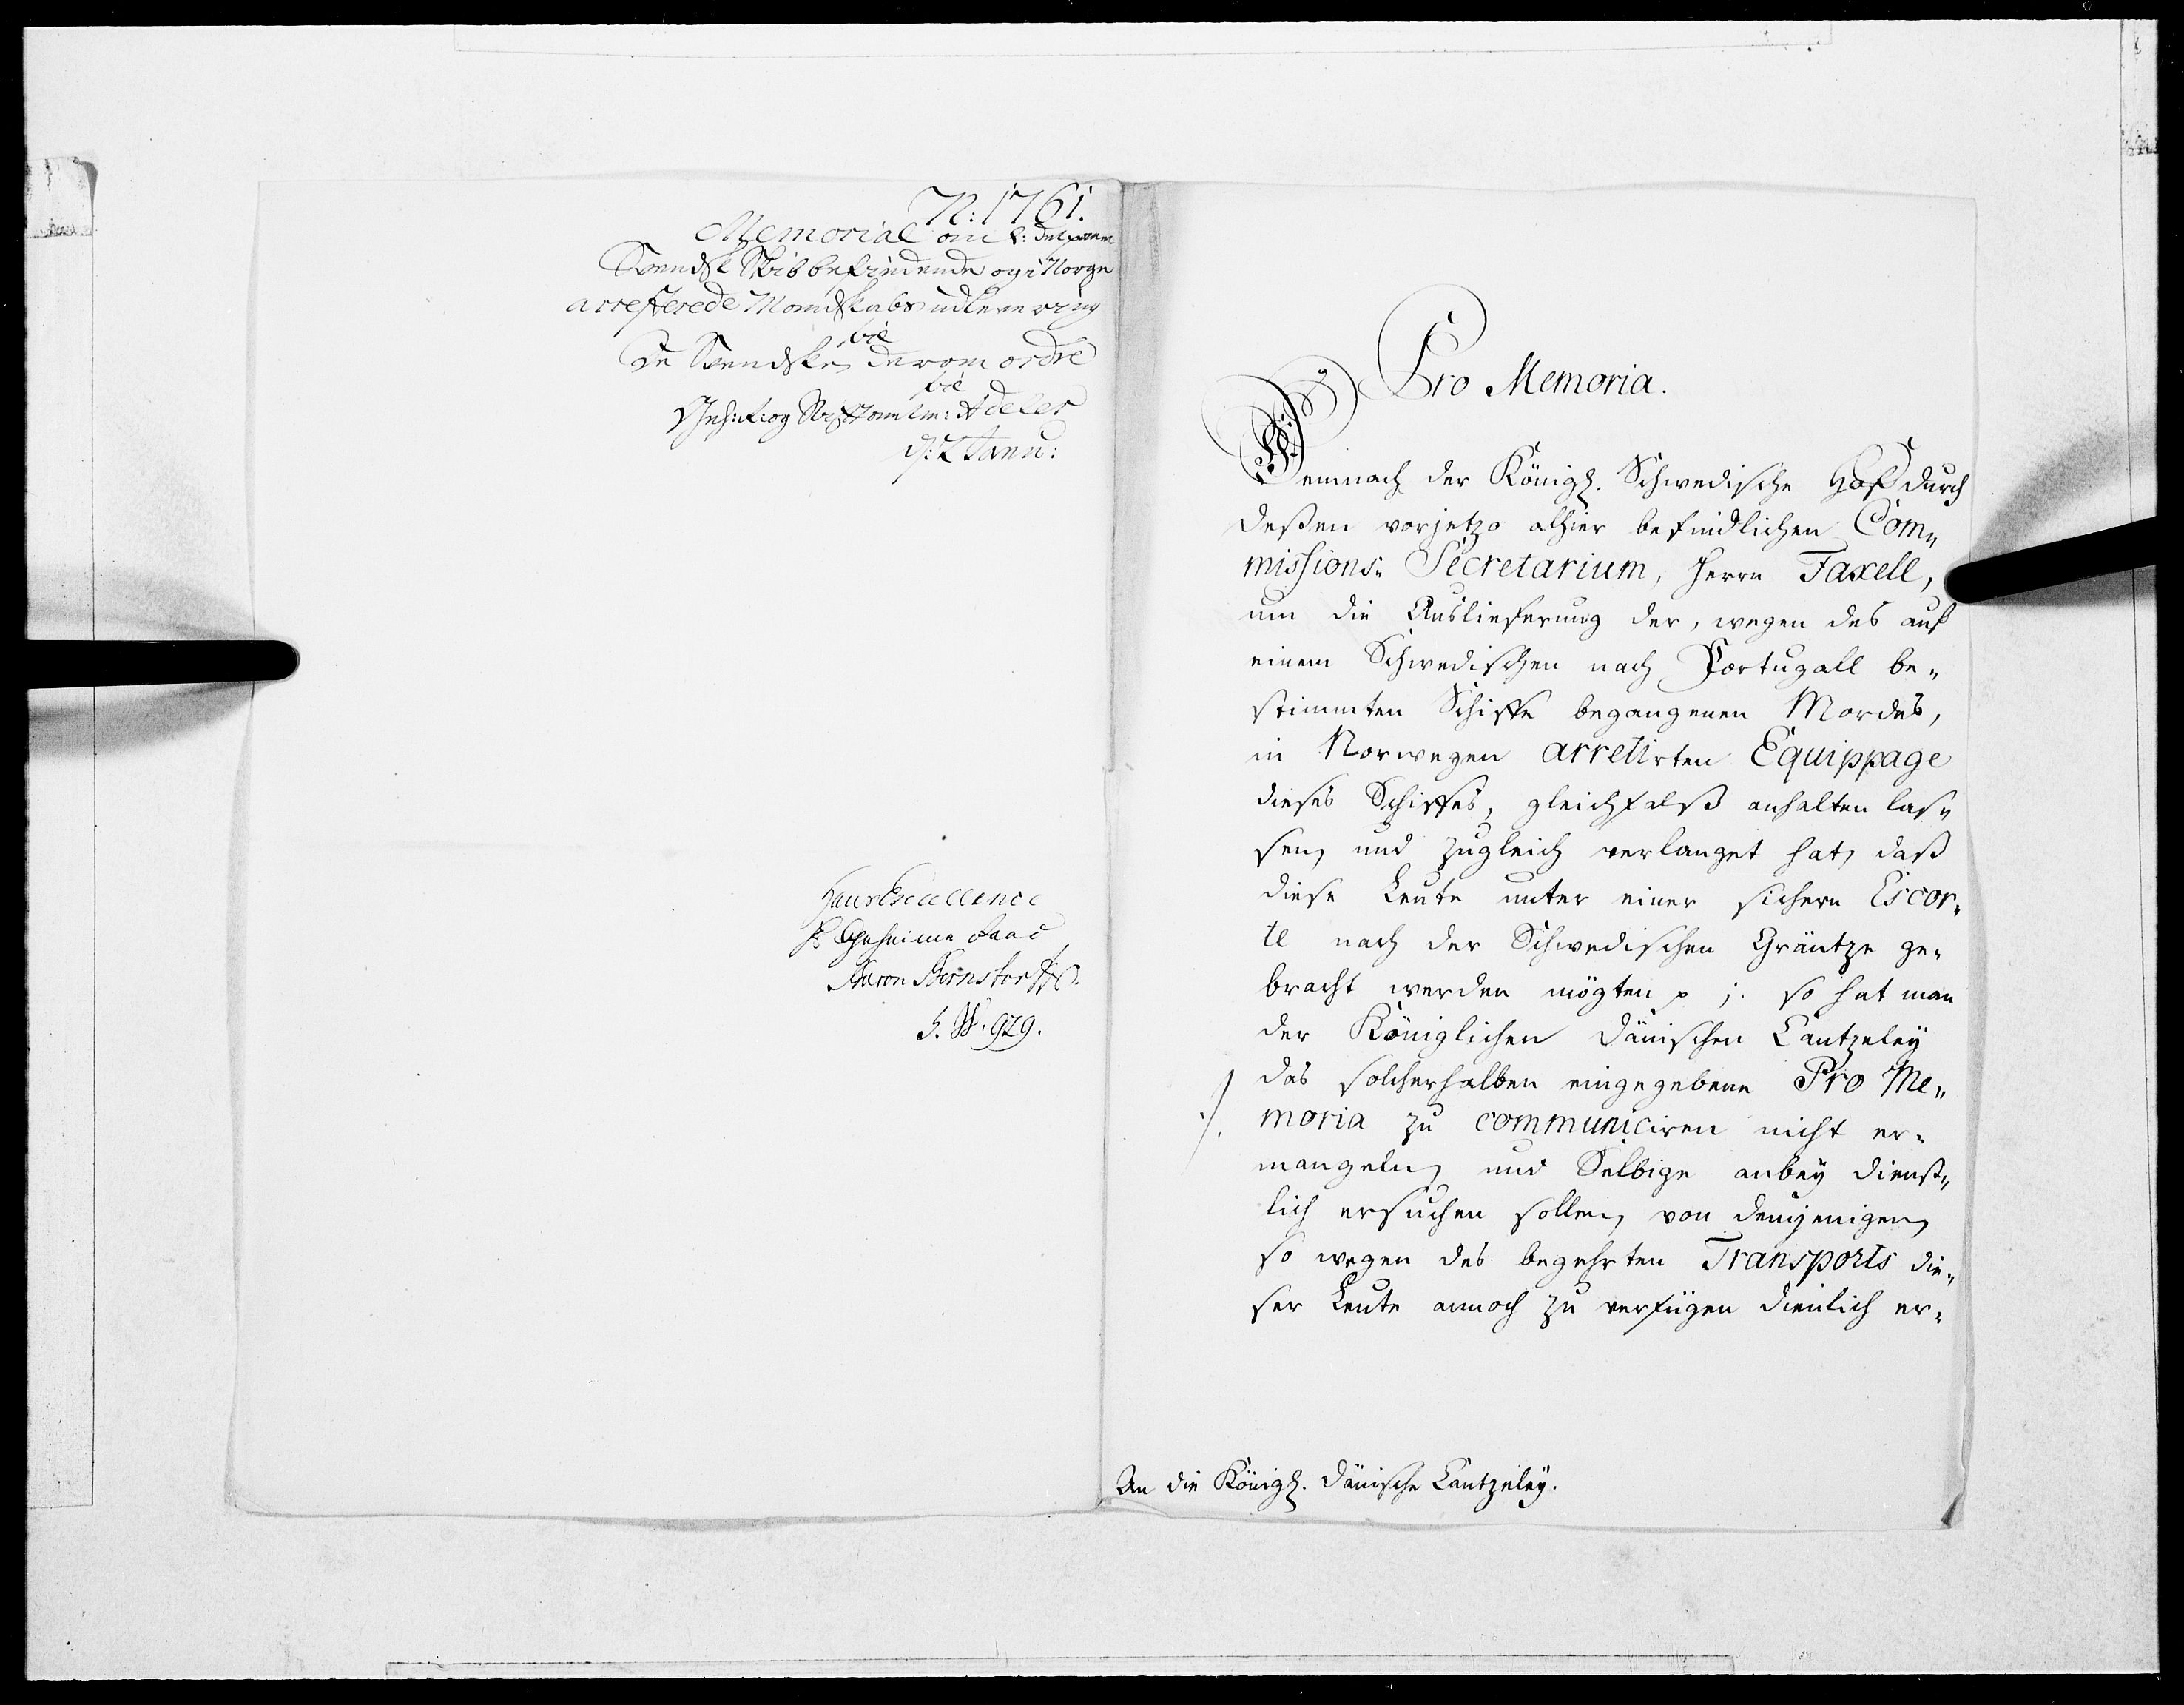 N: 1761.
Memorial om
Svendsk Skib befindende og i Norge
arresterede Mandskabs udlevering
til
De Svendske derom ordre
til
og Stiftamtm: Adeler
d: 2 Janu:
Hans Excellence
H. Geheime Raad
Baron Bernstorff.
929.
Pro Memoria.
Demnach der Königl. Schwedische Hof durch
deßen vorjetzo alhier befindlichen Com„
missions„ Secretarium, Herrn Faxell,
um die Auslieferung der, wegen des auf
einem Schwedischen nach Portugall be„
stimmten Schiffe begangenen Mordes,
in Norwegen arretirten Equippage
dieses Schiffes, gleichfalß anhalten las„
sen, und zugleich verlanget hat, daß
diese Leute unter einer sichern Escor„
te nach der Schwedischen Gräntze ge„
bracht werden mögten ; so hat man
der Königlichen Dänischen Cantzeley
das solcherhalben eingegebene Pro Me„
moria zu communiciren nicht er„
mangeln, und Selbige anbey dienst„
lich ersuchen sollen, von demjenigen,
so wegen des begehrten Transports die„
ser Leute annoch zu verfügen dienlich er„
An die Königl. Dänische Cantzeley.